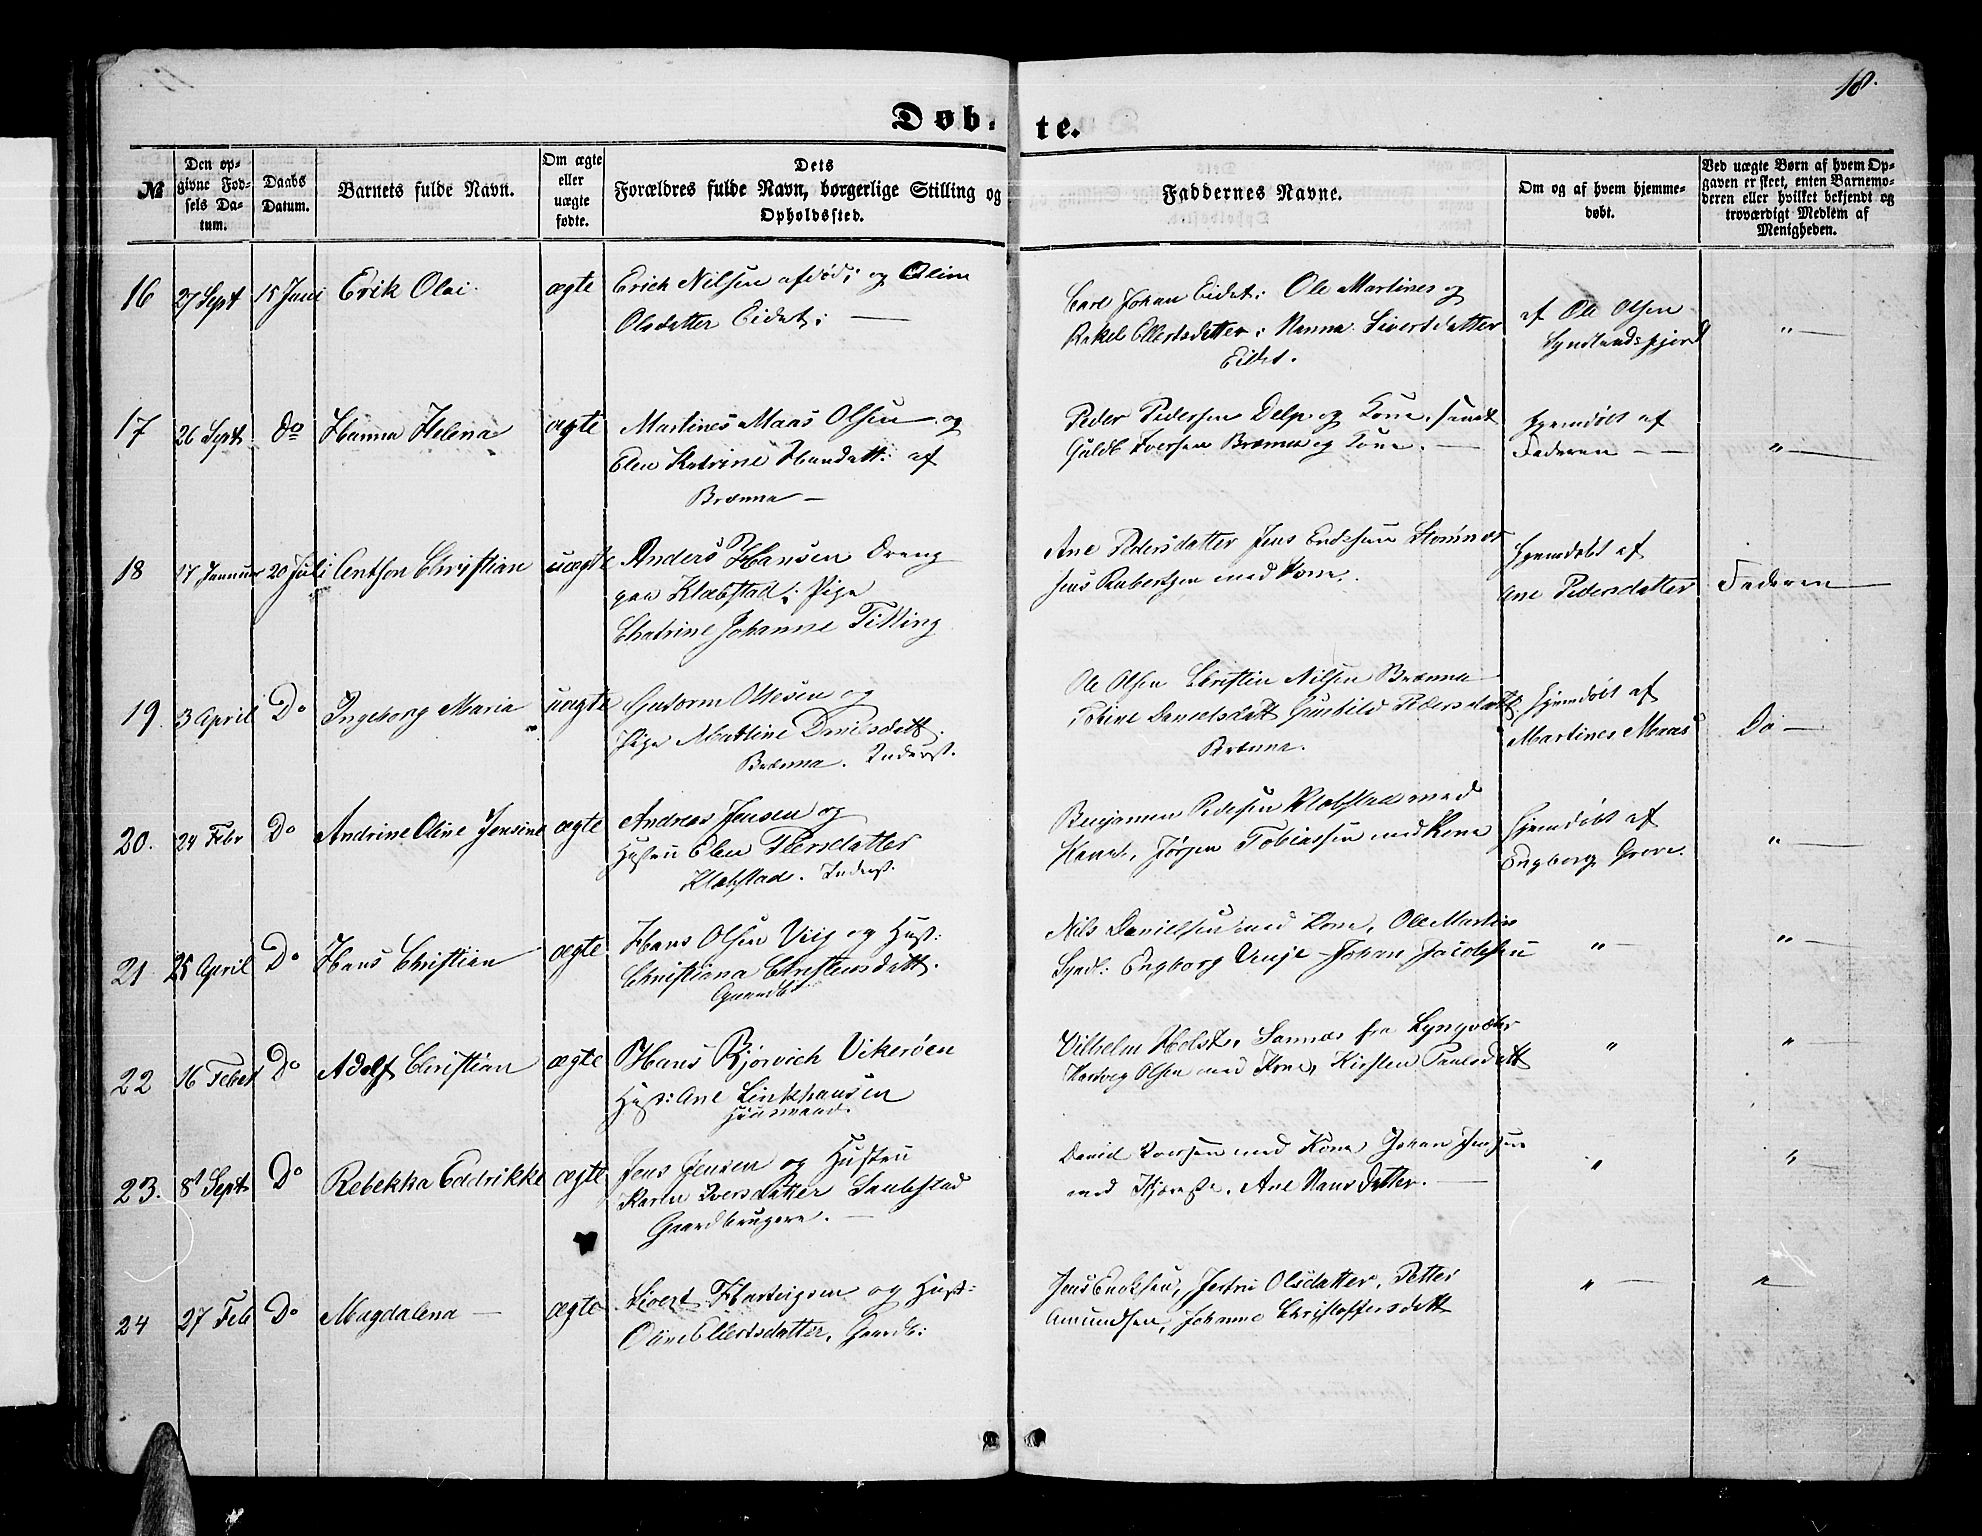 18.
Døbte.
№
Den opgivne Fødsels Datum.
Daabs Datum.
Barnets fulde Navn.
Om ægte eller uægte fødte.
Dets Forældres fulde Navn, borgerlige Stilling og Opholdssted.
Faddernes Navne.
Om og af hvem hjemmedøbt.
Ved uægte Børn af hvem Opgaven er skeet, enten Barnemoderen eller hvilket bekjendt og troværdigt Medlem af Menigheden.
16 27 Sept 15 Juni Erik Olai ægte
Erich Nilsen afdød; og Oline
Olsdatter Eidet;
Carl Johan Eidet; Ole Martines og
Rakel Ellertsdatter; Nanna Sivertsdatter
Eidet.
af Ole Olsen
"
17 26 Sept Do Hanna Helena ægte
Martines Maas Olsen og
Elen Katrine Hansdatt: af
Brænna
Peder Pedersen Delp og Kone, samt
Guldb Iversen Brænna og Kone.
Hjemdøbt af
Faderen
"
18 17 Januar 20 Juli Anthon Christian uægte
Anders Hansen Dreng
paa Klæbstad; Pige
Chatrine Johanne Titling
Ane Pedersdatter Jens
Jens Robertsen med Kone.
Hjemdøbt af
Ane Pedersdatter
Faderen
19. 3 April Do Ingeborg Maria uægte
Guttorm Ottesen og
Pige Martine Danilsdatt.
Brænna. Inderst.
Ole Olsen Christin Nilsen Brænna
Tobine Danielsdatt Gunhild Pedersdatt
Brænna.
Hjemdøbt af
Martines Maas
Do
20. 24 Febr Do Andrine Oline Jensine ægte
Andreas Jensen og
Hustru Elen Persdatter
Klæbstad. Inderst.
Benjamin Pedersen Klæbstad med
Kone, Jørgen Tobiassen med Kone
Hjemdøbt af
Engborg Greve.
"
21 25 April Do Hans Christian ægte
Hans Olsen Viig og Hust:
Christiana Christensdatt.
Gaardb
Nils Danielsen med Kone, Ole Martin
Synd: Engborg Johan Jacobsen
"
"
22 16 Feber Do Adolf Christian ægte
Hans Bjørvich Vikerøen
Hust: Ane Linkhausen
Huusmand.
Vilhelm Holst, Sannæs fra Lyngvær
Hartvig Olsen med Kone, Kirsten Paulsdatt
"
"
23. 8d Sept Do Rebekka Eddrikke ægte
Jens Jensen og Hustru
Karen Iversdatter Saubstad
Gaardbrugere.
David Iversen med Kone Johan Jensen
med Kjæreste, Ane Hansdatter.
"
"
24 27 Feb Do Magdalena ægte
Sivert Hartvigsen og Hust:
Oline Ellertsdatter, Gaardb:
Jens Enoksen, Jertru Olsdatter, Petter
Amundsen, Johanna Christoffersdatt
"
"